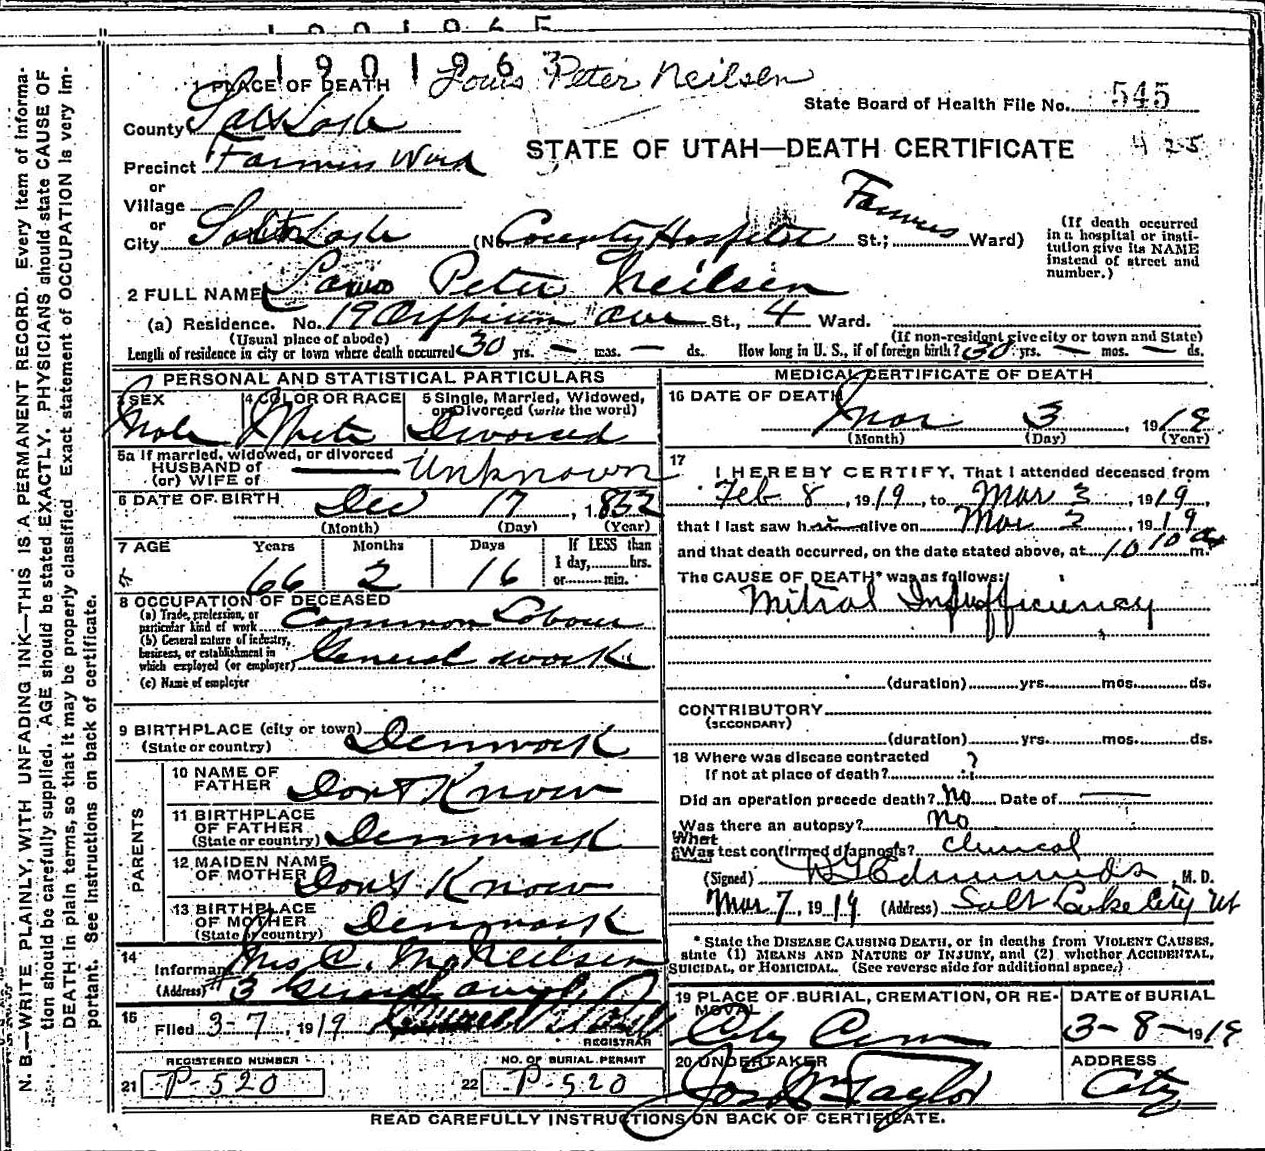 1901963
Louis Peter Neilsen
1 PLACE OF DEATH
State Board of Health File No. 545
County Salt Lake
STATE OF UTAH—DEATH CERTIFICATE
425
Precinct Farmers Ward
or
Village
or
City Salt Lake (No County Hospital St.; Farmers Ward)
(If death occurred
in a hospital or insti-
tution give its NAME
instead of street and
number.)
2 FULL NAME Louis Peter Neilsen
(a) Residence. No. 19 Orpheum Ave St., 4 Ward.
(Usual place of abode)
(If non-resident give city or town and State)
Length of residence in city or town where death occurred 30 yrs. — mos. — ds.
How long in U. S., if of foreign birth? 30 yrs. — mos. — ds.
PERSONAL AND STATISTICAL PARTICULARS
3 SEX
Male
4 COLOR OR RACE
White
5 Single, Married, Widowed,
or Divorced (write the word)
Divorced
5a If married, widowed, or divorced
HUSBAND of
(or) WIFE of
Unknown
6 DATE OF BIRTH Dec 17, 1852
(Month) (Day) (Year)
7 AGE Years Months Days
66 2 16
If LESS than
1 day,........hrs.
or.........min.
8 OCCUPATION OF DECEASED
(a) Trade, profession, or
particular kind of work Common Labour
(b) General nature of industry,
business, or establishment in
which employed (or employer) General work
(c) Name of employer
9 BIRTHPLACE (city or town)
(State or country) Denmark
PARENTS
10 NAME OF
FATHER Dont Know
11 BIRTHPLACE
OF FATHER
(State or country) Denmark
12 MAIDEN NAME
OF MOTHER Dont Know
13 BIRTHPLACE
OF MOTHER
(State or country) Denmark
14
Informant Mrs C. M. Neilsen
(Address) # 3
15
Filed 3-7, 1919
REGISTRAR
REGISTERED NUMBER
21 P-520
NO. OF BURIAL PERMIT
22 P-520
MEDICAL CERTIFICATE OF DEATH
16 DATE OF DEATH
Mar 3 1919
(Month) (Day) (Year)
17
I HEREBY CERTIFY, That I attended deceased from
Feb 8, 1919, to Mar 3, 1919,
that I last saw him alive on Mar 2, 1919
and that death occurred, on the date stated above, at 10 10 a m.
The CAUSE OF DEATH* was as follows:
Mitral Insufficiency
(duration) yrs. mos. ds.
CONTRIBUTORY
(SECONDARY)
(duration) yrs. mos. ds.
18 Where was disease contracted
If not at place of death? ?
Did an operation precede death? No Date of —
Was there an autopsy? No
What
Was test confirmed diagnosis? Clinical
(Signed) Edmunds, M. D.
Mar 7, 1919 (Address) Salt Lake City Ut
* State the DISEASE CAUSING DEATH, or in deaths from VIOLENT CAUSES,
state (1) MEANS AND NATURE OF INJURY, and (2) whether ACCIDENTAL,
SUICIDAL, or HOMICIDAL. (See reverse side for additional space.)
19 PLACE OF BURIAL, CREMATION, OR RE-
MOVAL
City Cem
DATE of BURIAL
3-8-1919
20 UNDERTAKER
Jos Wm Taylor
ADDRESS
City
READ CAREFULLY INSTRUCTIONS ON BACK OF CERTIFICATE.
N. B.—WRITE PLAINLY, WITH UNFADING INK—THIS IS A PERMANENT RECORD. Every item of informa-
tion should be carefully supplied. AGE should be stated EXACTLY. PHYSICIANS should state CAUSE OF
DEATH in plain terms, so that it may be properly classified. Exact statement of OCCUPATION is very im-
portant. See instructions on back of certificate.